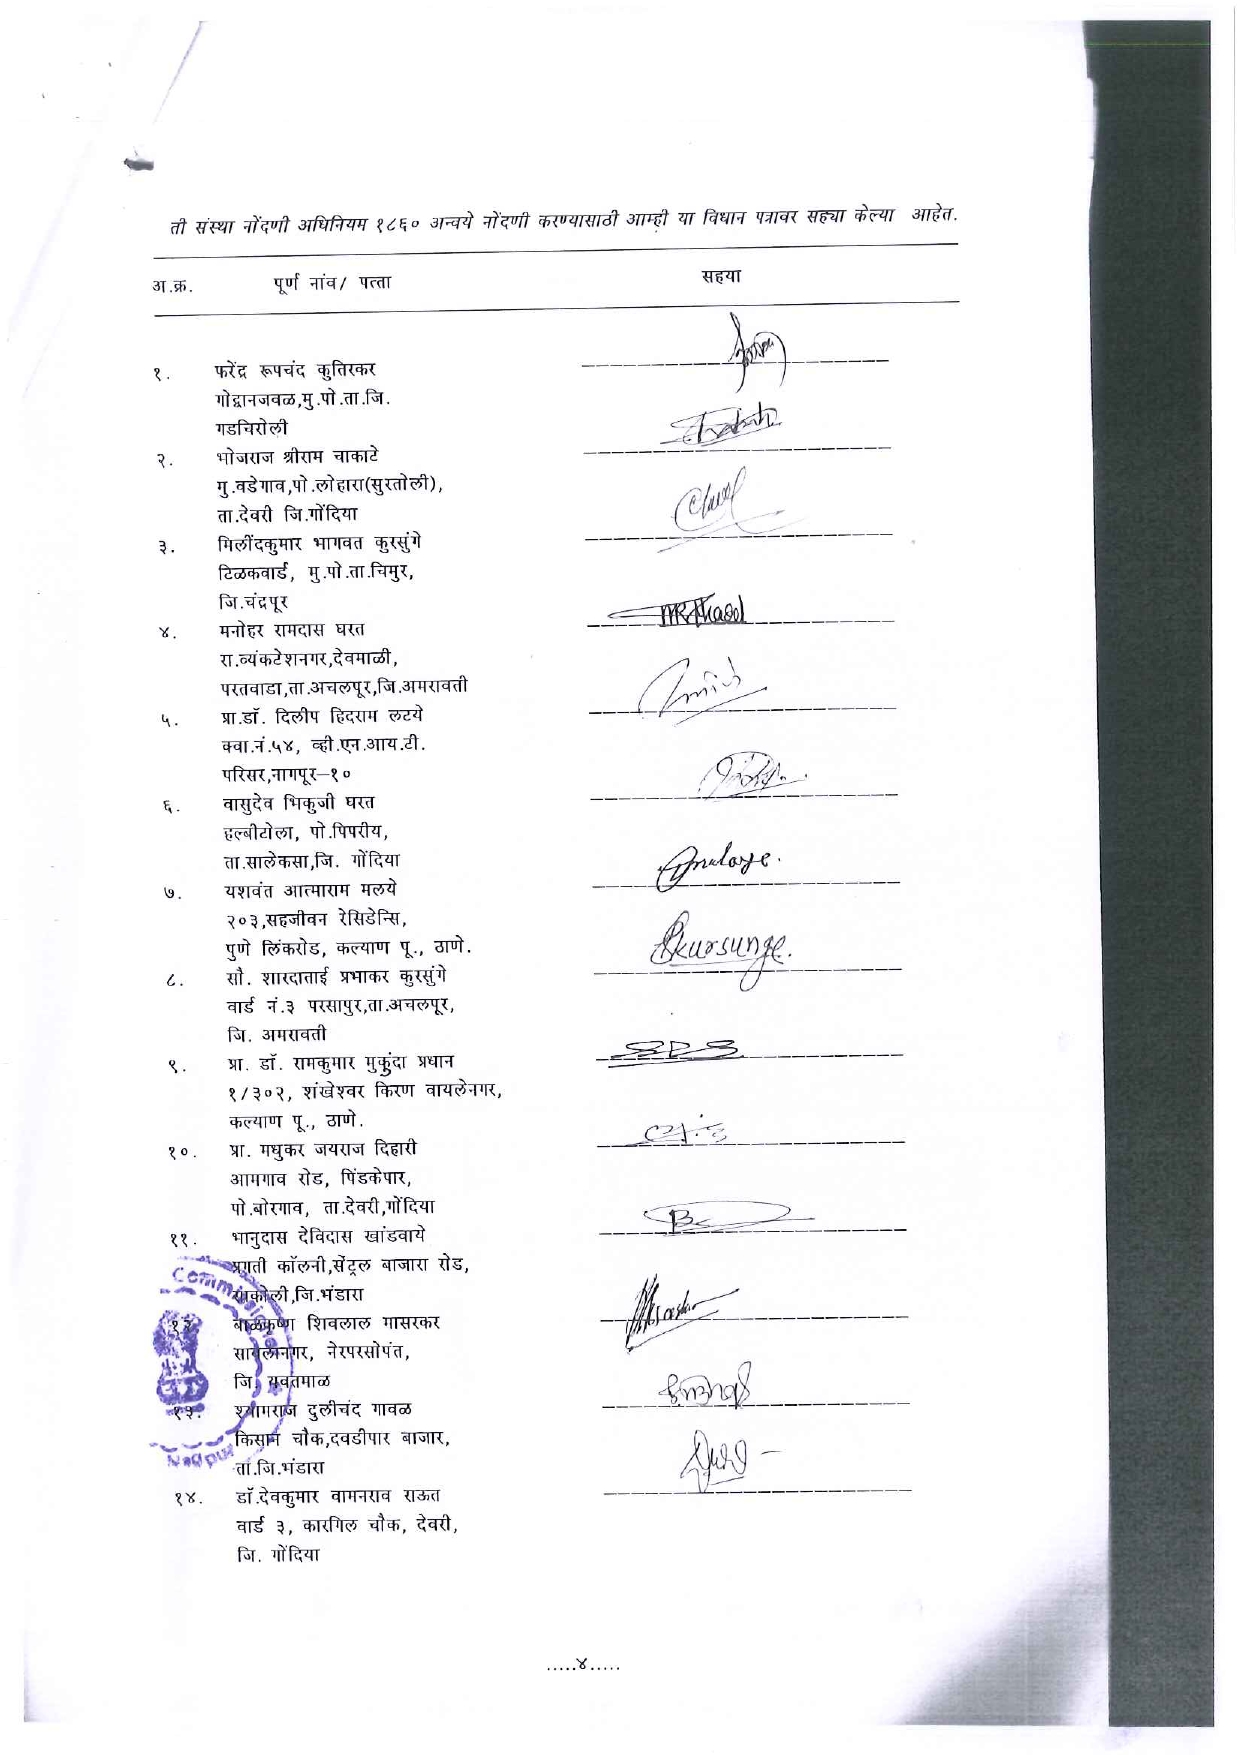 ती संस्था नोंदणी अधिनियम १८६० अन्वये नोंदणी करण्यासाठी आम्ही या विधान पत्रावर सह्या केल्या आहेत.
अ.क्र. पूर्ण नांव/ पत्ता सहया
१. फरेंद्र रूपचंद कुतिरकर
गोद्वानजवळ,मु.पो.ता.जि.
गडचिरोली
२. भोजराज श्रीराम चाकाटे
मु.वडेगाव,पो.लोहारा(सुरतोली),
ता.देवरी जि.गोंदिया
३. मिलींदकुमार भागवत कुरसुंगे
टिळकवार्ड, मु.पो.ता.चिमुर,
जि.चंद्रपूर
४. मनोहर रामदास घरत
रा.व्यंकटेशनगर,देवमाळी,
परतवाडा,ता.अचलपूर,जि.अमरावती
५. प्रा.डॉ. दिलीप हिदराम लटये
क्वा.नं.५४, व्ही.एन.आय.टी.
परिसर,नागपूर–१०
६. वासुदेव भिकुजी घरत
हल्बीटोला, पो.पिपरीय,
ता.सालेकसा,जि. गोंदिया
७. यशवंत आत्माराम मलये
२०३,सहजीवन रेसिडेन्सि,
पुणे लिंकरोड, कल्याण पू., ठाणे.
८. सौ. शारदाताई प्रभाकर कुरसुंगे
Skursunge.
वार्ड नं.३ परसापुर,ता.अचलपूर,
जि. अमरावती
९. प्रा. डॉ. रामकुमार मुकुंदा प्रधान
१/३०२, शंखेश्वर किरण वायलेनगर,
कल्याण पू., ठाणे.
१०. प्रा. मधुकर जयराज दिहारी
आमगाव रोड, पिंडकेपार,
पो.बोरगाव, ता.देवरी,गोंदिया
११. भानुदास देविदास खांडवाये
प्रगती कॉलनी,सेंट्रल बाजारा रोड,
साकोली,जि.भंडारा
१२. बाळकृष्ण शिवलाल मासरकर
नेरपरसोपंत,
जि. यवतमाळ
१३. श्यामराज दुलीचंद गावळ
किसान चौक,दवडीपार बाजार,
ता.जि.भंडारा
१४. डॉ.देवकुमार वामनराव राऊत
वार्ड ३, कारगिल चौक, देवरी,
जि. गोंदिया
Nagpur
.....४.....